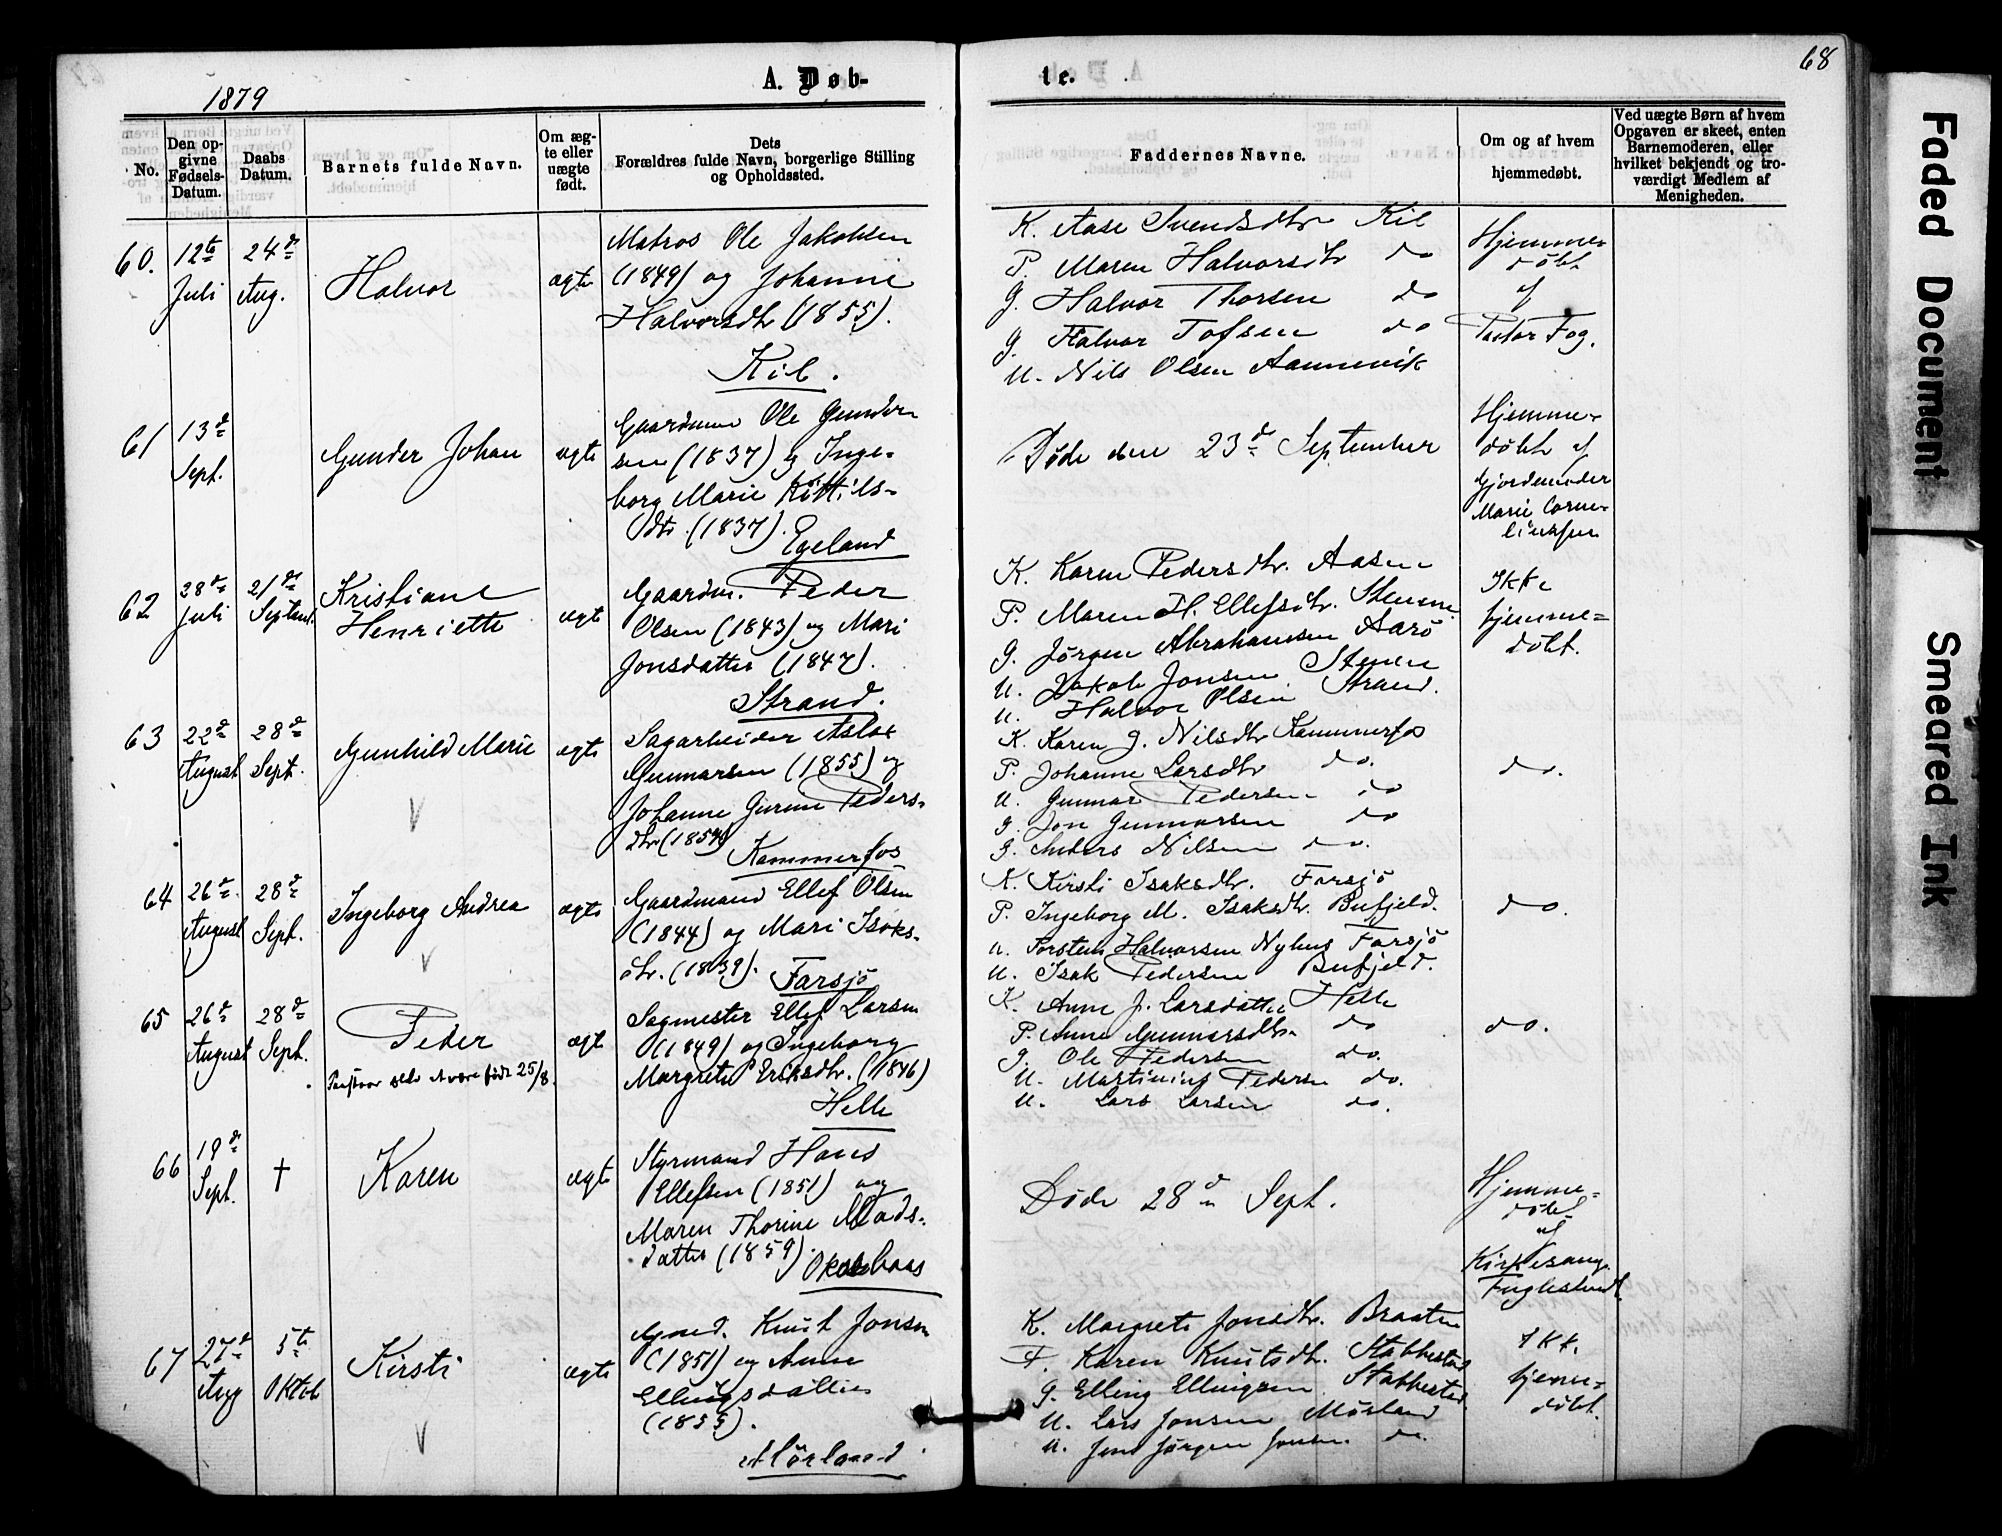 68
1879
A. Døb-
te.
No.
Den op-
givne
Fødsels-
Datum.
Daabs
Datum.
Barnets fulde Navn.
Om æg-
te eller
uægte
født.
Dets
Forældres fulde Navn, borgerlige Stilling
og Opholdssted.
Faddernes Navne.
Om og af hvem
hjemmedøbt.
Ved uægte Børn af hvem
Opgaven er skeet, enten
Barnemoderen, eller
hvilket bekjendt og tro-
værdigt Medlem af
Menigheden.
60.
12te
Juli
24de
Aug.
Halvor
ægte
Matros Ole Jakobsen
(1849) og Johanne
Halvorsdtr (1855).
Kil.
K. Aase Svendsdtr Kil
P. Maren Halvorsdtr do
G. Halvor Thorsen do
G. Halvor Tofsen do
U. Nils Olsen Aannevik
Hjemme-
døbt
af
Pastor Fog.
61
13de
Sept.
Gunder Johan
ægte
Gaardman Ole Gunder-
sen (1837) og Inge-
borg Marie Kittils-
dtr. (1837).
Egeland
Døde den 23de September
Hjemme-
døbt af
Gjordemoder
Marie Corne-
liussen
62
28de
Juli
21de
Septemb.
Kristiane
Henriette
ægte
Gaardm. Peder
Olsen (1843) og Mari
Jonsdatter (1847).
Strand.
K. Karen Pedersdtr. Aasen
P. Maren H. Ellefsdtr. Stenene
G. Jørgen Abrahamsen Aarö
U. Jakob Jonsen Stenene
U. Halvor Olsen Strand.
Ikke
hjemme=
døbt.
63
22de
August
28de
Sept.
Gunhild Marie
ægte
Sagarbeider Aslak
Gunnarsen (1855) og
Johanne Gurine Peders-
dtr (1854)
Kammerfos
K. Karen G. Nilsdtr Kammerfos
P. Johanne Larsdtr do.
U. Gunnar Pedersen do
G. Jon Gunnarsen do
G. Anders Nilsen do.
do.
64
26de
August
28de
Sept.
Ingeborg Andrea
ægte
Gaardmand Ellef Olsen
(1844) og Mari Isaks-
dtr. (1839).
Farsjø
K. Kirsti Isaksdtr. Farsjø
P. Ingeborg M. Isaksdtr. Bufjeld.
U. Torsten Halvorsen Nyhus Farsjø
U. Isak Pedersen Bufjeld.
do.
65
26de
August
28de
Sept.
Peder
født 25/8.
ægte
Sagmester Ellef Larsen
(1849) og Ingeborg
Margrete Eriksdtr. (1846)
Helle
K. Anne J. Larsdatter Helle
P. Anne Gunnarsdtr. do
G. Ole Pedersen do.
U. Martinius Pedersen do.
U. Lars Larsen do.
do.
66
19de
Sept.
†
Karen
ægte
Styrmand Hans
Ellefsen (1851) og
Maren Thorine Mads-
datter (1859).
Døde 28de Sept.
Hjemme=
døbt
af
Kirkesang.
Fuglestvedt.
67
27de
Aug
5te
Oktob
Kirsti
ægte
Gmd. Knut Jonsen
(1851) og Anne
Ellingsdatter
(1855).
Mörland.
K. Margrete Jonsdtr. Braaten
P. Karen Knutsdtr. Stabbestad
G. Elling Ellingsen Stabbestad
U. Lars Jonsen Mörland
U. Jens Jørgen Jonsen do.
Ikke
hjemme-
døbt.
Faded Document
Smeared Ink